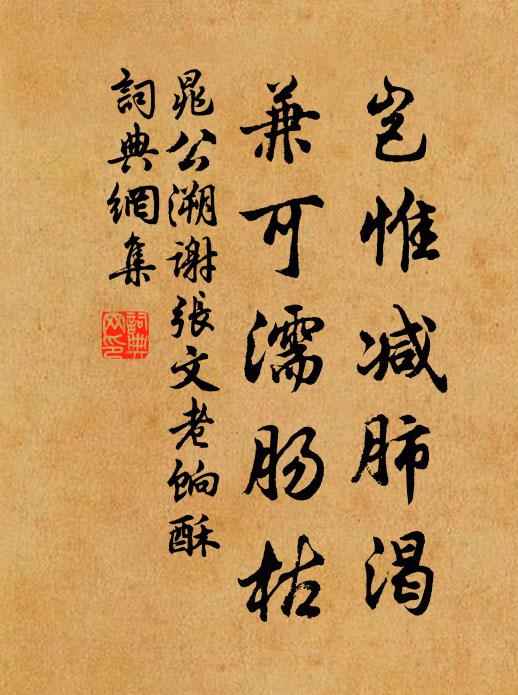 岂惟减肺渴
兼可濡肠枯
晁公溯谢张文老饷酥
詞典網集
詞典網印